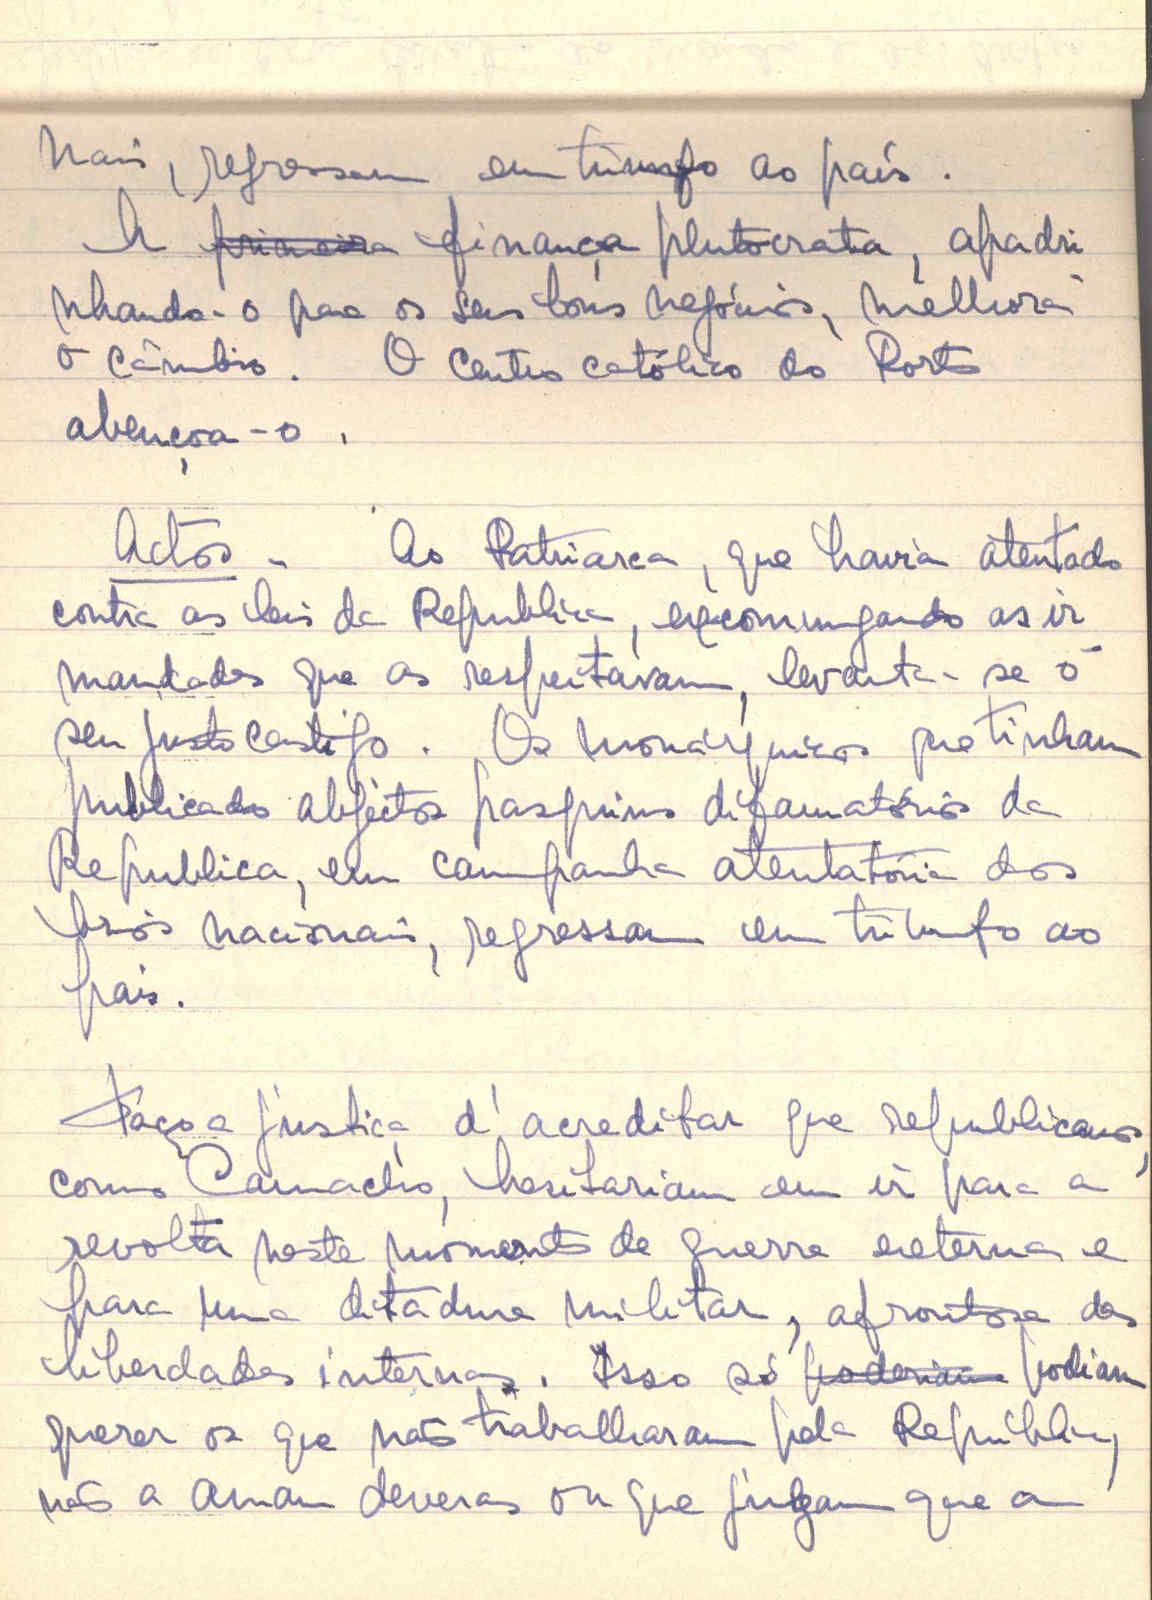 nais, regressam em triunfo ao país.
A primeira finança plutocrata, apadri
nhando-o para os seus bons negócios, melhora
o câmbio. O Centro católico do Porto
abençoa-o.
Actos - Ao Patriarca, que havia atentado
contra as leis da Republica, excomungando as ir
mandades que as respeitavam, levanta-se o
seu justo castigo. Os monárquicos que tinham
publicado abjectos pasquins difamatórios da
Republica, em campanha atentatória dos
brios nacionais, regressam em triunfo ao
país.
Faço a justiça d'acreditar que republicanos,
como Camacho, hesitariam em ir para a
revolta neste momento de guerra externa e
para uma ditadura militar, afrontosa das
liberdades internas. Isso só poderiam podiam
querer os que não trabalharam pela República,
não a amam deveras ou que julgam que a